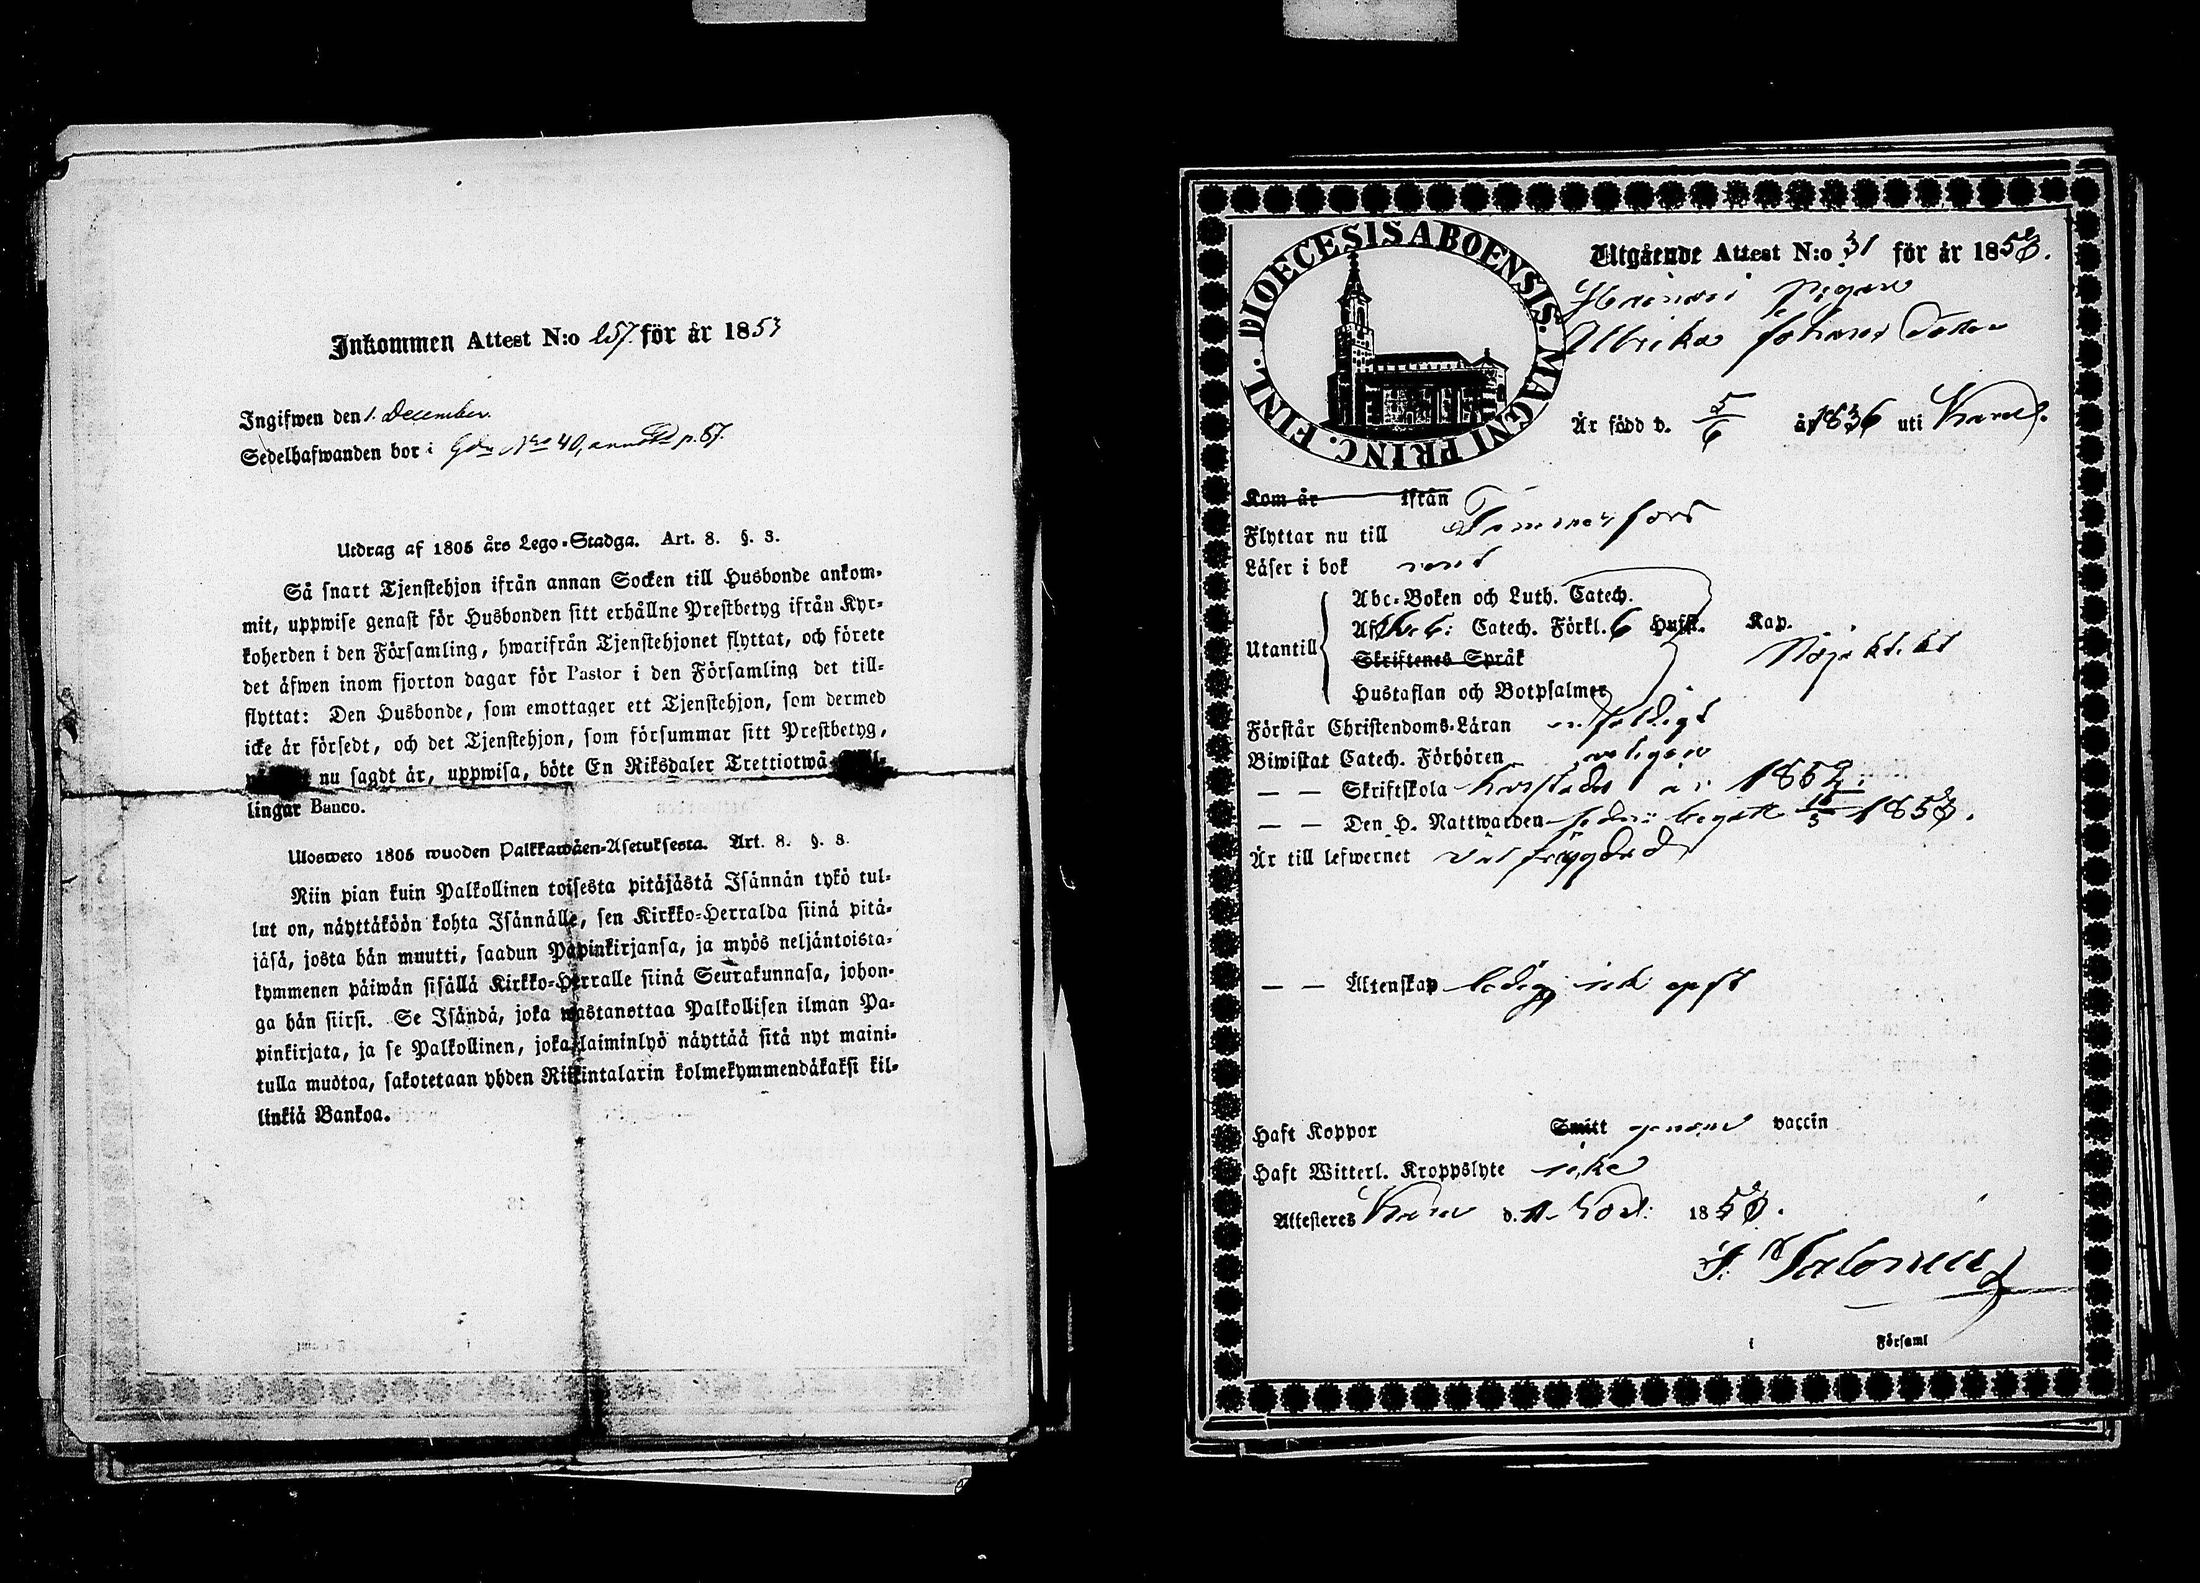 Inkommen Attest N:o 257. för år 1853
Ingifwen den 1. December.
Sedelhafwanden bor i Gdn Nro 40, p. 67.
Utdrag af 1805 års Lego-Stadga. Art. 8. §. 3.
Så snart Tjenstehjon ifrån annan Socken till Husbonde ankom-
mit, uppwise genast för Husbonden sitt erhållne Prestbetyg ifrån Kyr-
koherden i den Församling, hwarifrån Tjenstehjonet flyttat, och förete
det äfwen inom fjorton dagar för Pastor i den Församling det till-
flyttat: Den Husbonde, som emottager ett Tjenstehjon, som dermed
icke är försedt, och det Tjenstehjon, som försummar sitt Prestbetyg,
nu sagdt är, uppwisa, böte En Riksdaler Trettiotwå
lingar Banco.
Ulosweto 1805 wuoden Palkkawäen-Asetuksesta. Art. 8. §. 3.
Niin pian kuin Palkollinen toisesta pitäjästä Isännän tykö tul-
lut on, näyttäköön kohta Isännälle, sen Kirkko-Herralda siinä pitä-
jäsä, josta hän muutti, saadun Papinkirjansa, ja myös neljäntoista-
kymmenen päiwän sisällä Kirkko-Herralle siinä Seurakunnasa, johon-
ga hän siirsi. Se Isändä, joka wastanottaa Palkollisen ilman Pa-
pinkirjata, ja se Palkollinen, joka laiminlyö näyttää sitä nyt maini-
tulla muotoa, sakotetaan yhden Riikintalarin kolmekymmendäkaksi kil-
linkiä Bankoa.
DIOECESIS ABOENSIS. MAGNI PRINC. FINL.
Utgående Attest N:o 31 för år 1853.
pigan
Ulrika Johans dotter
Är född d. 5/6 år 1836 uti
Kom år ifrån
Flyttar nu till Tammerfors
Läser i bok rent
Abc-Boken och Luth. Catech.
Af Catech. Förkl. 6 Hufst. Kap.
Utantill Skriftenes Språk Nöjaktigt
Hustaflan och Botpsalmer
Förstår Christendoms-Läran enfaldigt
Biwistat Catech. Förhören
— — Skriftskola år 1852.
— — Den H. Nattwarden begått 1853.
Är till lefwernet välfrägdad
— — Äktenskap ledig
Haft Koppor Smitt genom vaccin
Haft Witterl. Kroppslyte icke
Attesteres d. 11 1853.
i Församl